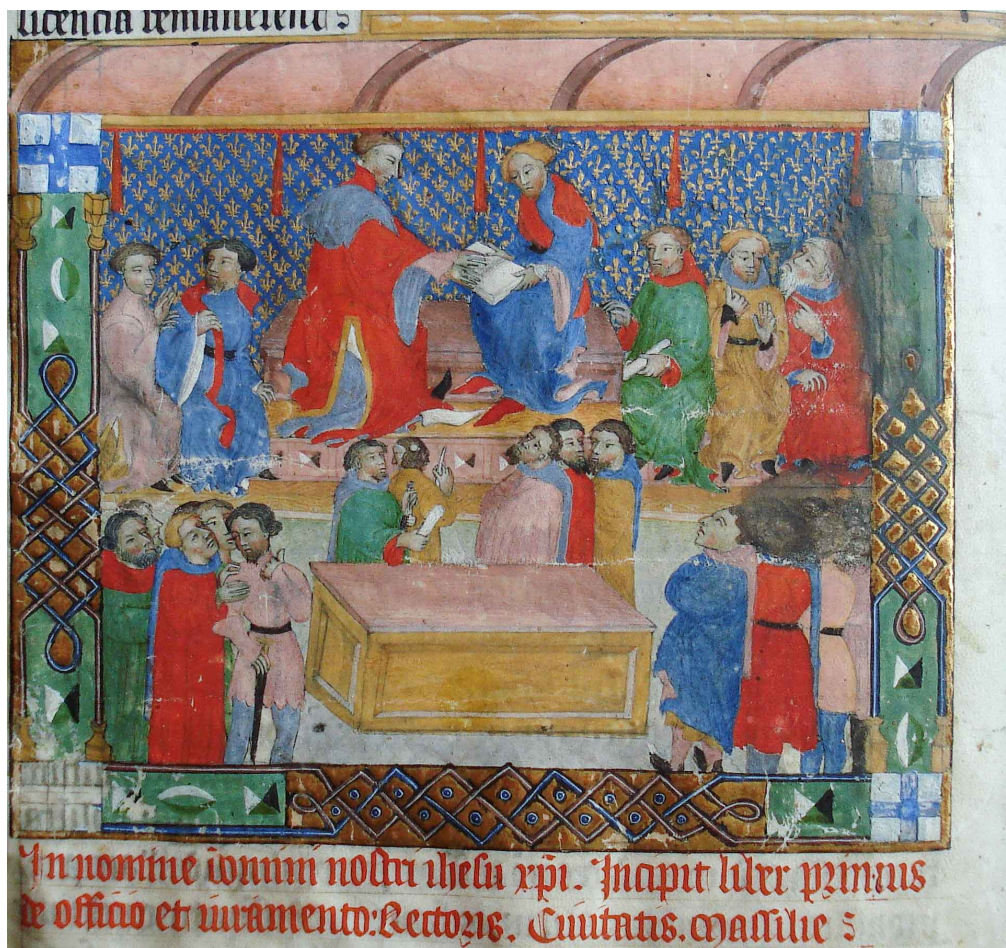 licencia remanerent
In nomine domini nostri ihesu xpi. Incipit liber primus
de officio et iuramento. Rectoris. Civitatis. Massilie